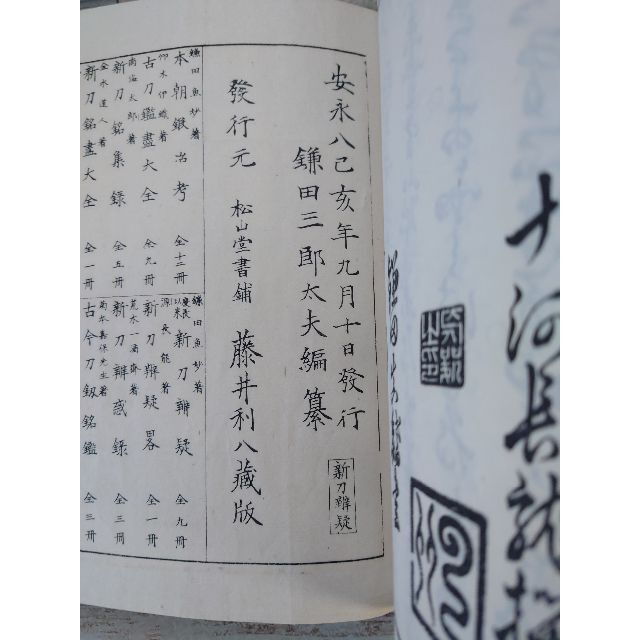 大河長就撰
安永八己亥年九月十日發行
鎌田三郎太夫編纂
新刀辨疑
發行元 松山堂書鋪 藤井利八藏版
鎌田魚妙著
本朝鍛冶考 全十二冊
仰木伊織著
古刀鑑盡大全 全九冊
南海太郎著
新刀銘集錄 全五冊
金水達人著
新刀銘盡大全 全一冊
鎌田魚妙著
慶長以来 新刀辨疑 全九冊
源長能著
新刀辨疑畧 全一冊
荒木一滴齋著
新刀辨惑錄 全三冊
菊本嘉保先生著
古今刀釼銘鑑 全三冊